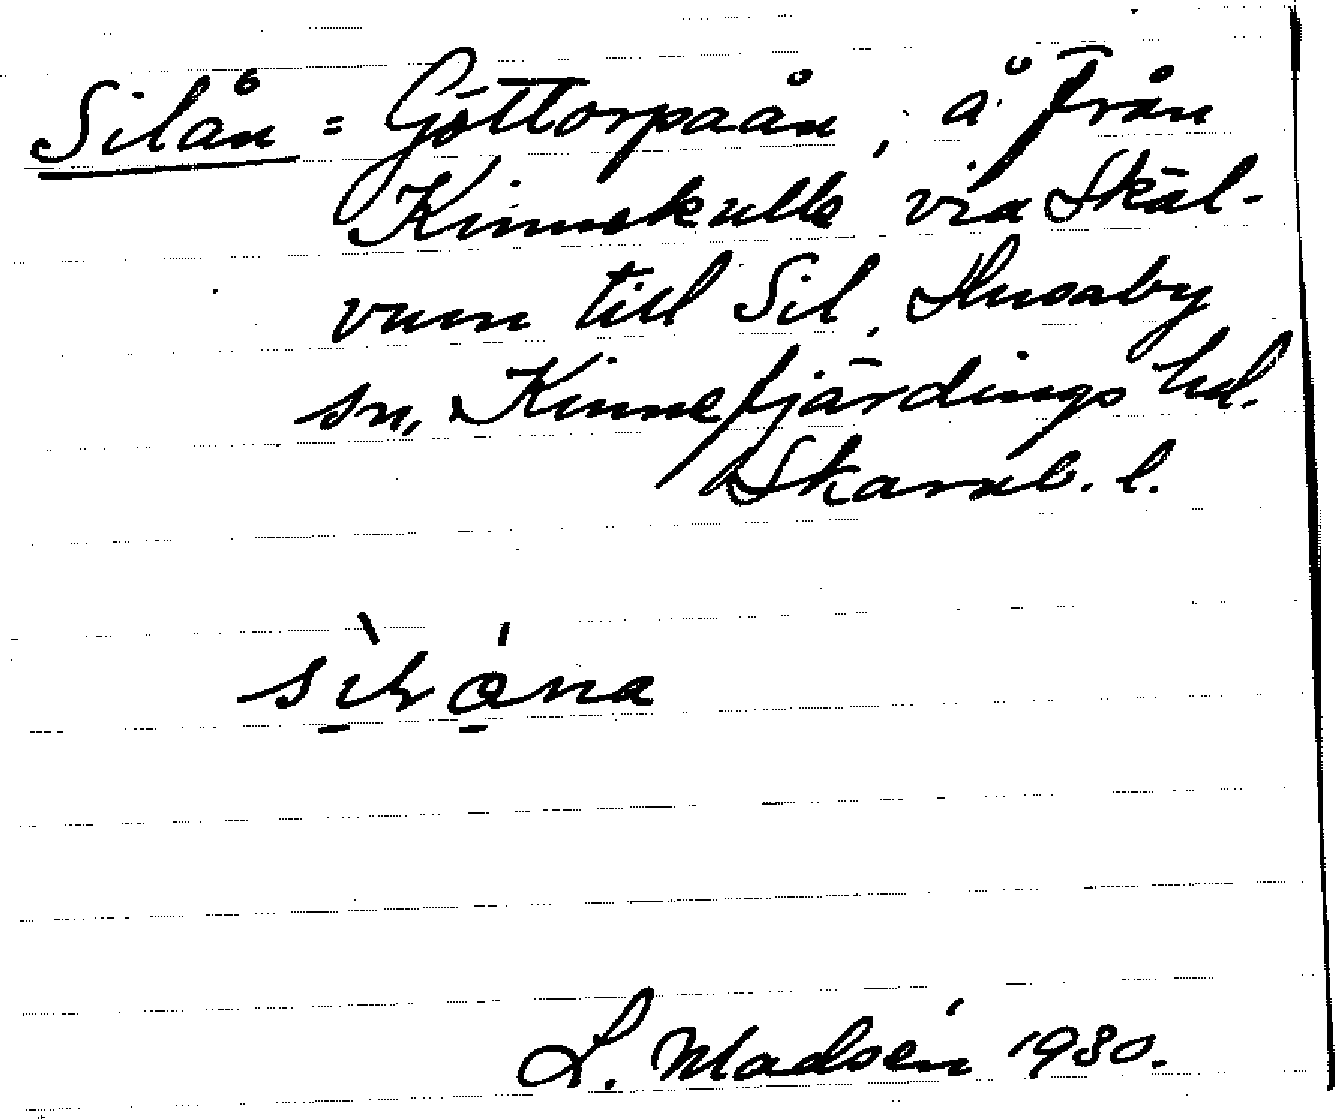 Silån = Göttorpaån, å från
Kinnekulle via Skäl-
vum till Sil, Husaby
sn, Kinnefjärdings hd.
Skarab. l.
L. Madsén 1930.